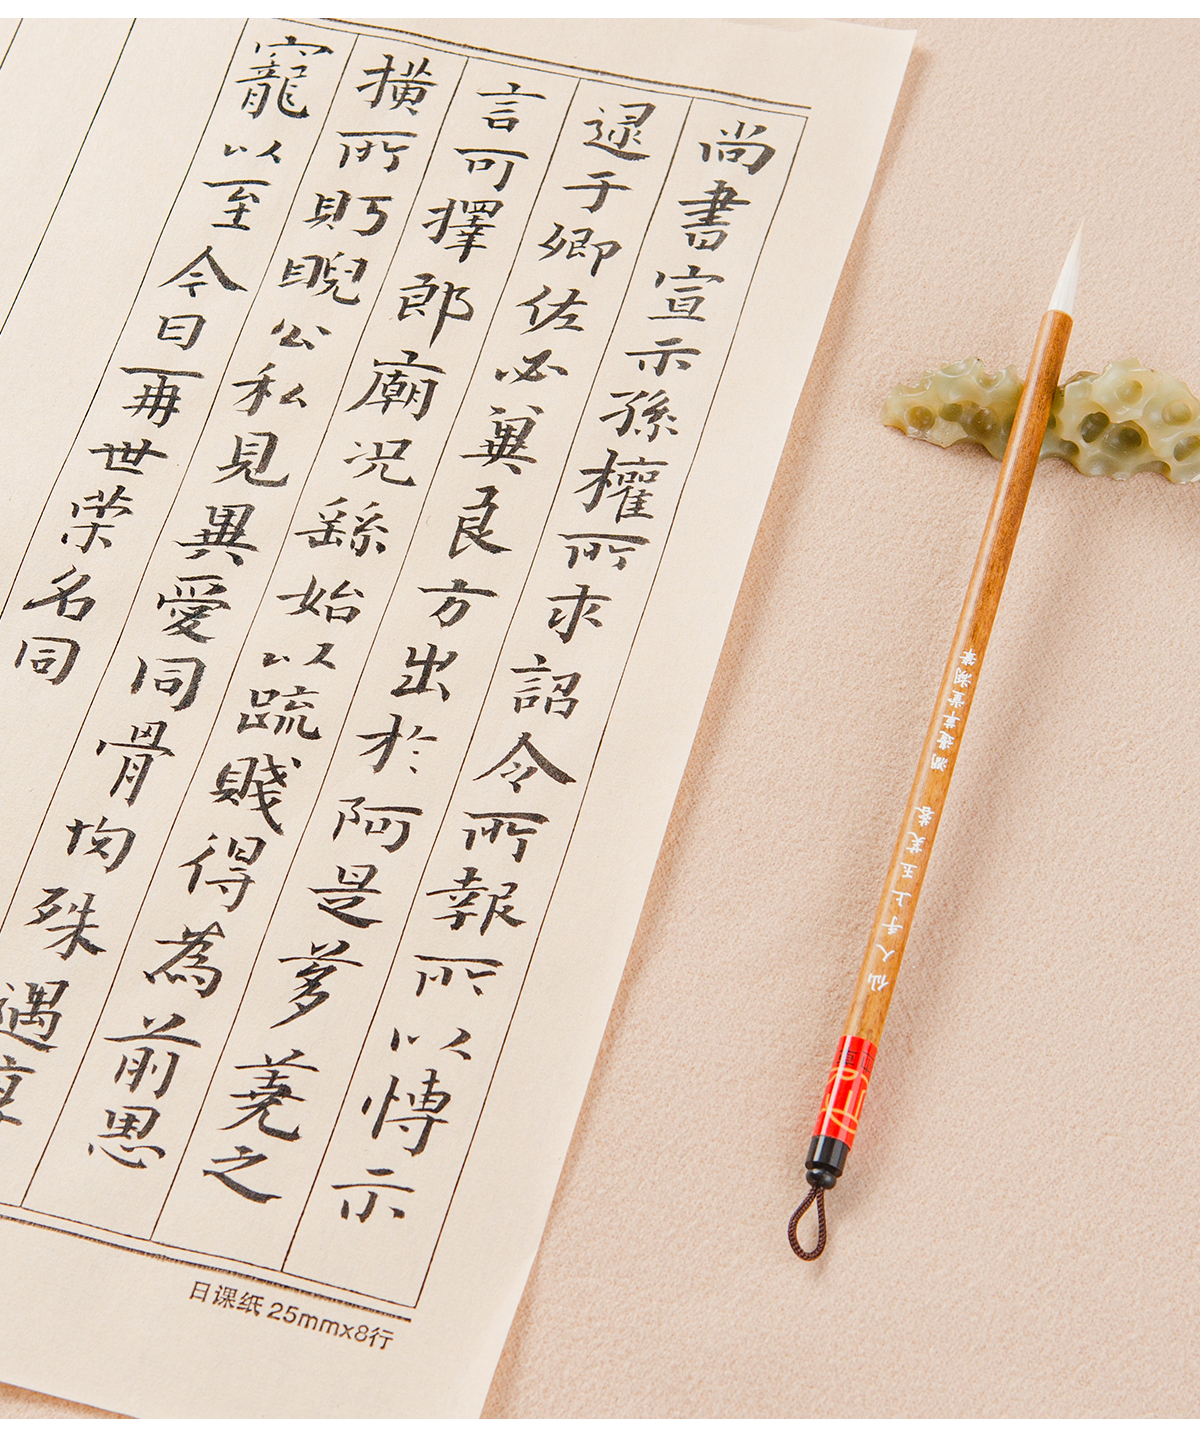 尚書宣示孫權所求詔令所報所以愽示
逮于卿佐必冀良方出於阿是芻蕘之
言可擇郎廟况繇始以疏賤得為前恩
横所睨公私見異愛同骨殊遇厚
寵以至今日再世荣名同
日课纸 25mmx8行
仙人手上玉芙蓉 草堂湖筆